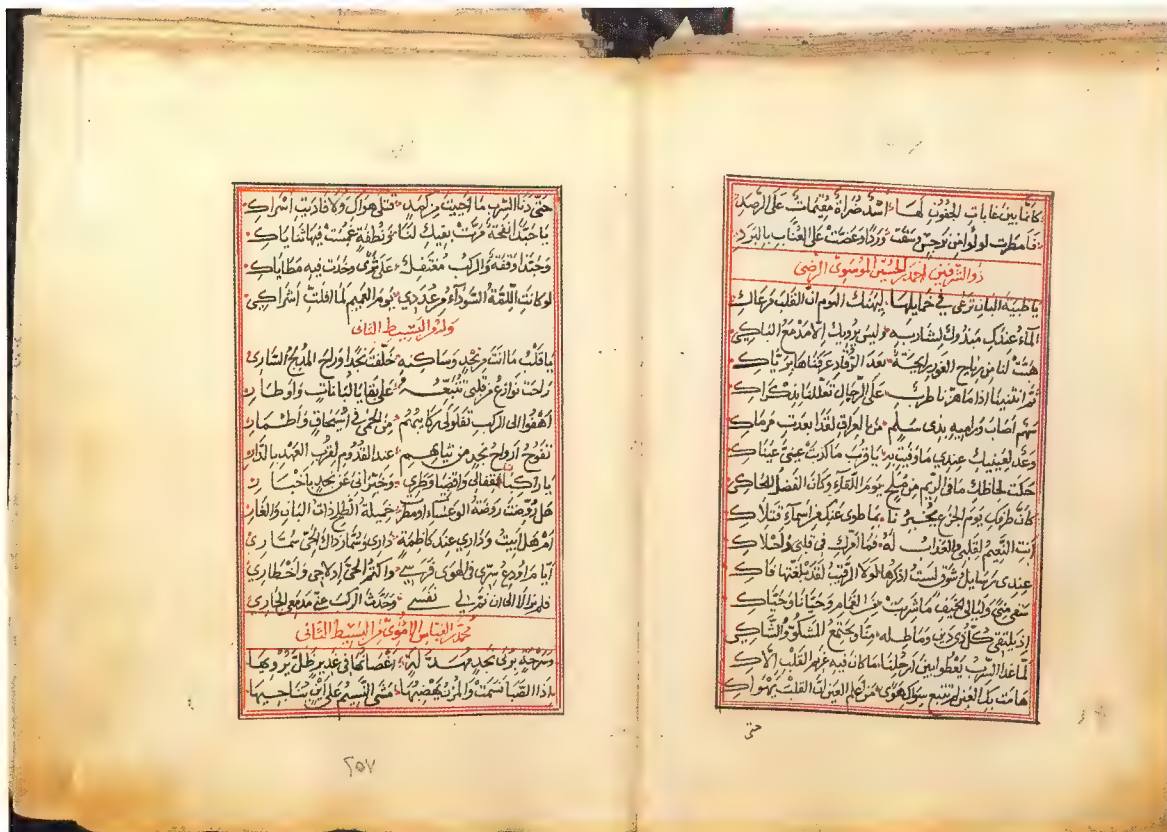 كأنما بين غابات الجفون لها أسد ضراة مقيمات على الرصد
فأمطرت لؤلؤا من نرجس وسقت وردا وعضت على العناب بالبرد
ذو الشرفين أحمد بن الحسين الموسوي الرضي
يا ظبية البان ترعى في خمايلها ليهنك اليوم أن القلب مرعاك
الماء عندك مبذول لشاربه وليس يرويك إلا مدمع الباكي
هبت لنا من رياح الغور رايحة بعد الرقاد عرفناها برياك
ثم انثنينا إذا ما هزنا طرب على الرحال تعللنا بذكراك
سهم أصاب وراميه بذي سلم من بالعراق لقد أبعدت مرماك
وعد لعينيك عندي ما وفيت به يا قرب ما كذبت عيني عيناك
حكت لحاظك ما في الريم من ملح يوم اللقاء وكان الفضل للحاكي
كأن طرفك يوم الجزع يخبرنا بما طوى عنك من أسماء قتلاك
أنت النعيم لقلبي والعذاب له فما أمرك في قلبي وأحلاك
عندي رسايل شوق لست أذكرها لولا الرقيب لقد بلغتها فاك
سقى منى وليالي الخيف ما شربت من الغمام وحيانا وحياك
إذ يلتقي كل ذي دين وماطله منا ويجتمع المشكو والشاكي
لما غدا السرب يعطو بين أرحلنا ما كان فيه غريم القلب إلاك
هامت بك العين لم تتبع سواك هوى من أعلم العين أن القلب يهواك
حتى
حتى دنا السرب ما أحييت من كمد قتلى هواك ولا فاديت أسراك
يا حبذا نفحة مرت بفيك لنا ونطفة غمست فيها ثناياك
وحبذا وقفة والركب مغتفل على ثرى وخدت فيه مطاياك
لو كانت اللمة السوداء من عددي يوم الغميم لما أفلت أشراكي
وله من البسيط الثاني
يا قلب ما أنت من نجد وساكنه خلفت نجدا وراء المدلج الساري
راحت نوازع من قلبي تتبعه على بقايا لبانات وأوطار
أهفو إلى الركب تعلو لي ركابهم من الحمى في أسيحاق وأطمار
تفوح أرواح نجد من ثيابهم عند القدوم لقرب العهد بالدار
يا راكبان قفا لي واقضيا وطري وخبراني عن نجد بأخبار
هل روضت روضة الوعساء أو مطرت خميلة الطلح ذات البان والغار
أم هل أبيت وداري عند كاظمة داري وسمار ذاك الحي سماري
أيام أودع سري في الهوى فرسي وأكتم الحي إدلاجي وأخطاري
فلم يزالا إلى أن نم بي نفسي وحدث الركب عني مدمعي الجاري
محمد بن العباس الأموي من البسيط الثاني
وسرحة بربى نجد مهدلة أغصانها في غدير ظل يرويها
إذا الصبا نسمت والمزن يهضبها مشى النسيم على أين يناجيها
٢٥٧